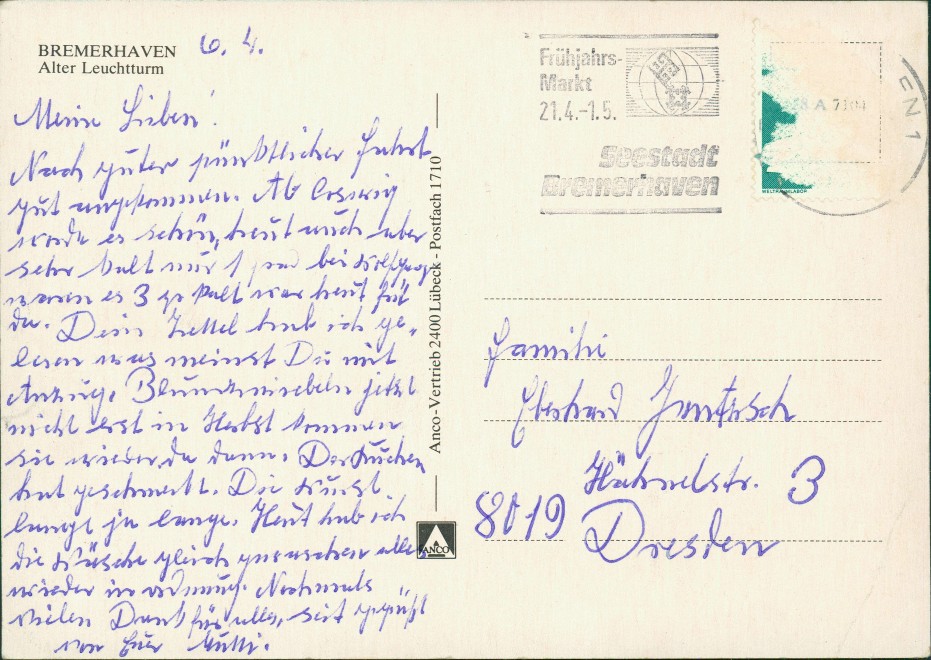 BREMERHAVEN
Alter Leuchtturm
6. 4.
Meine Lieben!
Nach guter pünktlicher Fahrt
gut angekommen. Ab Coswig
wurde es schön, heut auch aber
sehr kalt nur 1 bei Wolfgang
waren es 3 so kalt war heut früh
da. Dein Zettel hab ich ge-
lesen was meinst Du mit
Anzug. Blumenzwiebeln jetzt
nicht erst in Herbst kommen
sie wieder, da dann. Der Kuchen
hat geschmeckt. Die Wurst
langt ja lange. Heut hab ich
die Wäsche gleich gewaschen alles
wieder in ordnung. Nochmals
vielen Dank für alles, seit gegrüßt
von Euer Mutti.
Anco-Vertrieb 2400 Lübeck - Postfach 1710
ANCO
Frühjahrs-
Markt
21.4.-1.5.
Seestadt
Bremerhaven
EN 1
WELTRAUMLABOR
Familie
Eberhard
Hähnelstr. 3
8019 Dresden